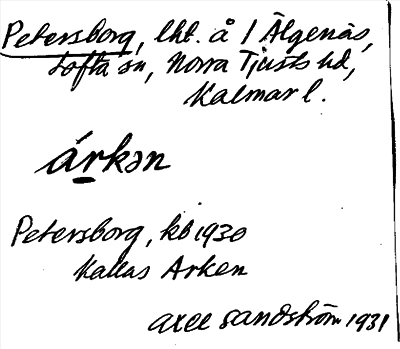 Petersborg, lht. å 1 Älgenäs,
Lofta sn, Norra Tjusts hd,
Kalmar l.
árkən
Petersborg, kb 1930
Kallas Arken
Axel Sandström 1931